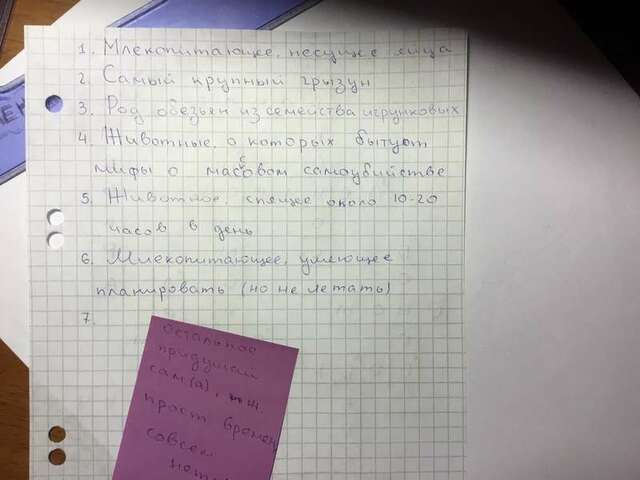 1. Млекопитающее, несущее яйца
2. Самый крупный грызун
3. Род обезьян из семейства игрунковых
4. Животные, о которых бытуют
мифы о массовом самоубийстве
5. Животное, спящее около 10-20
часов в день
6. Млекопитающее, умеющее
планировать (но не летать)
7.
остальное
придумай
сам(а),
прост времен
совсем